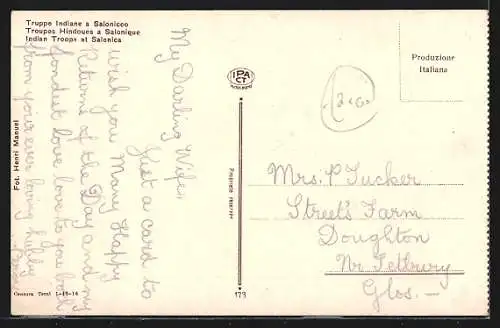 Truppe Indiane a Salonicco
Troupes Hindoues a Salonique
Indian Troops at Salonica
Fot. Henri Manuel
Censura Torni 1-10-16
My Darling Wife,
Just a card to
wish you Many Happy
Returns of the Day and my
fondest love love to you both
from your ever loving hubby
IPA CT
Proprietà riservata
173
Produzione
Italiana
Mrs. P Tucker
Street's Farm
Doughton
Nr Tetbury
Glos.